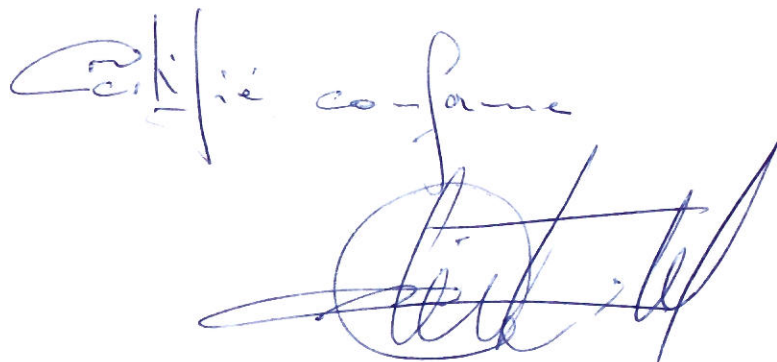 Certifié conforme